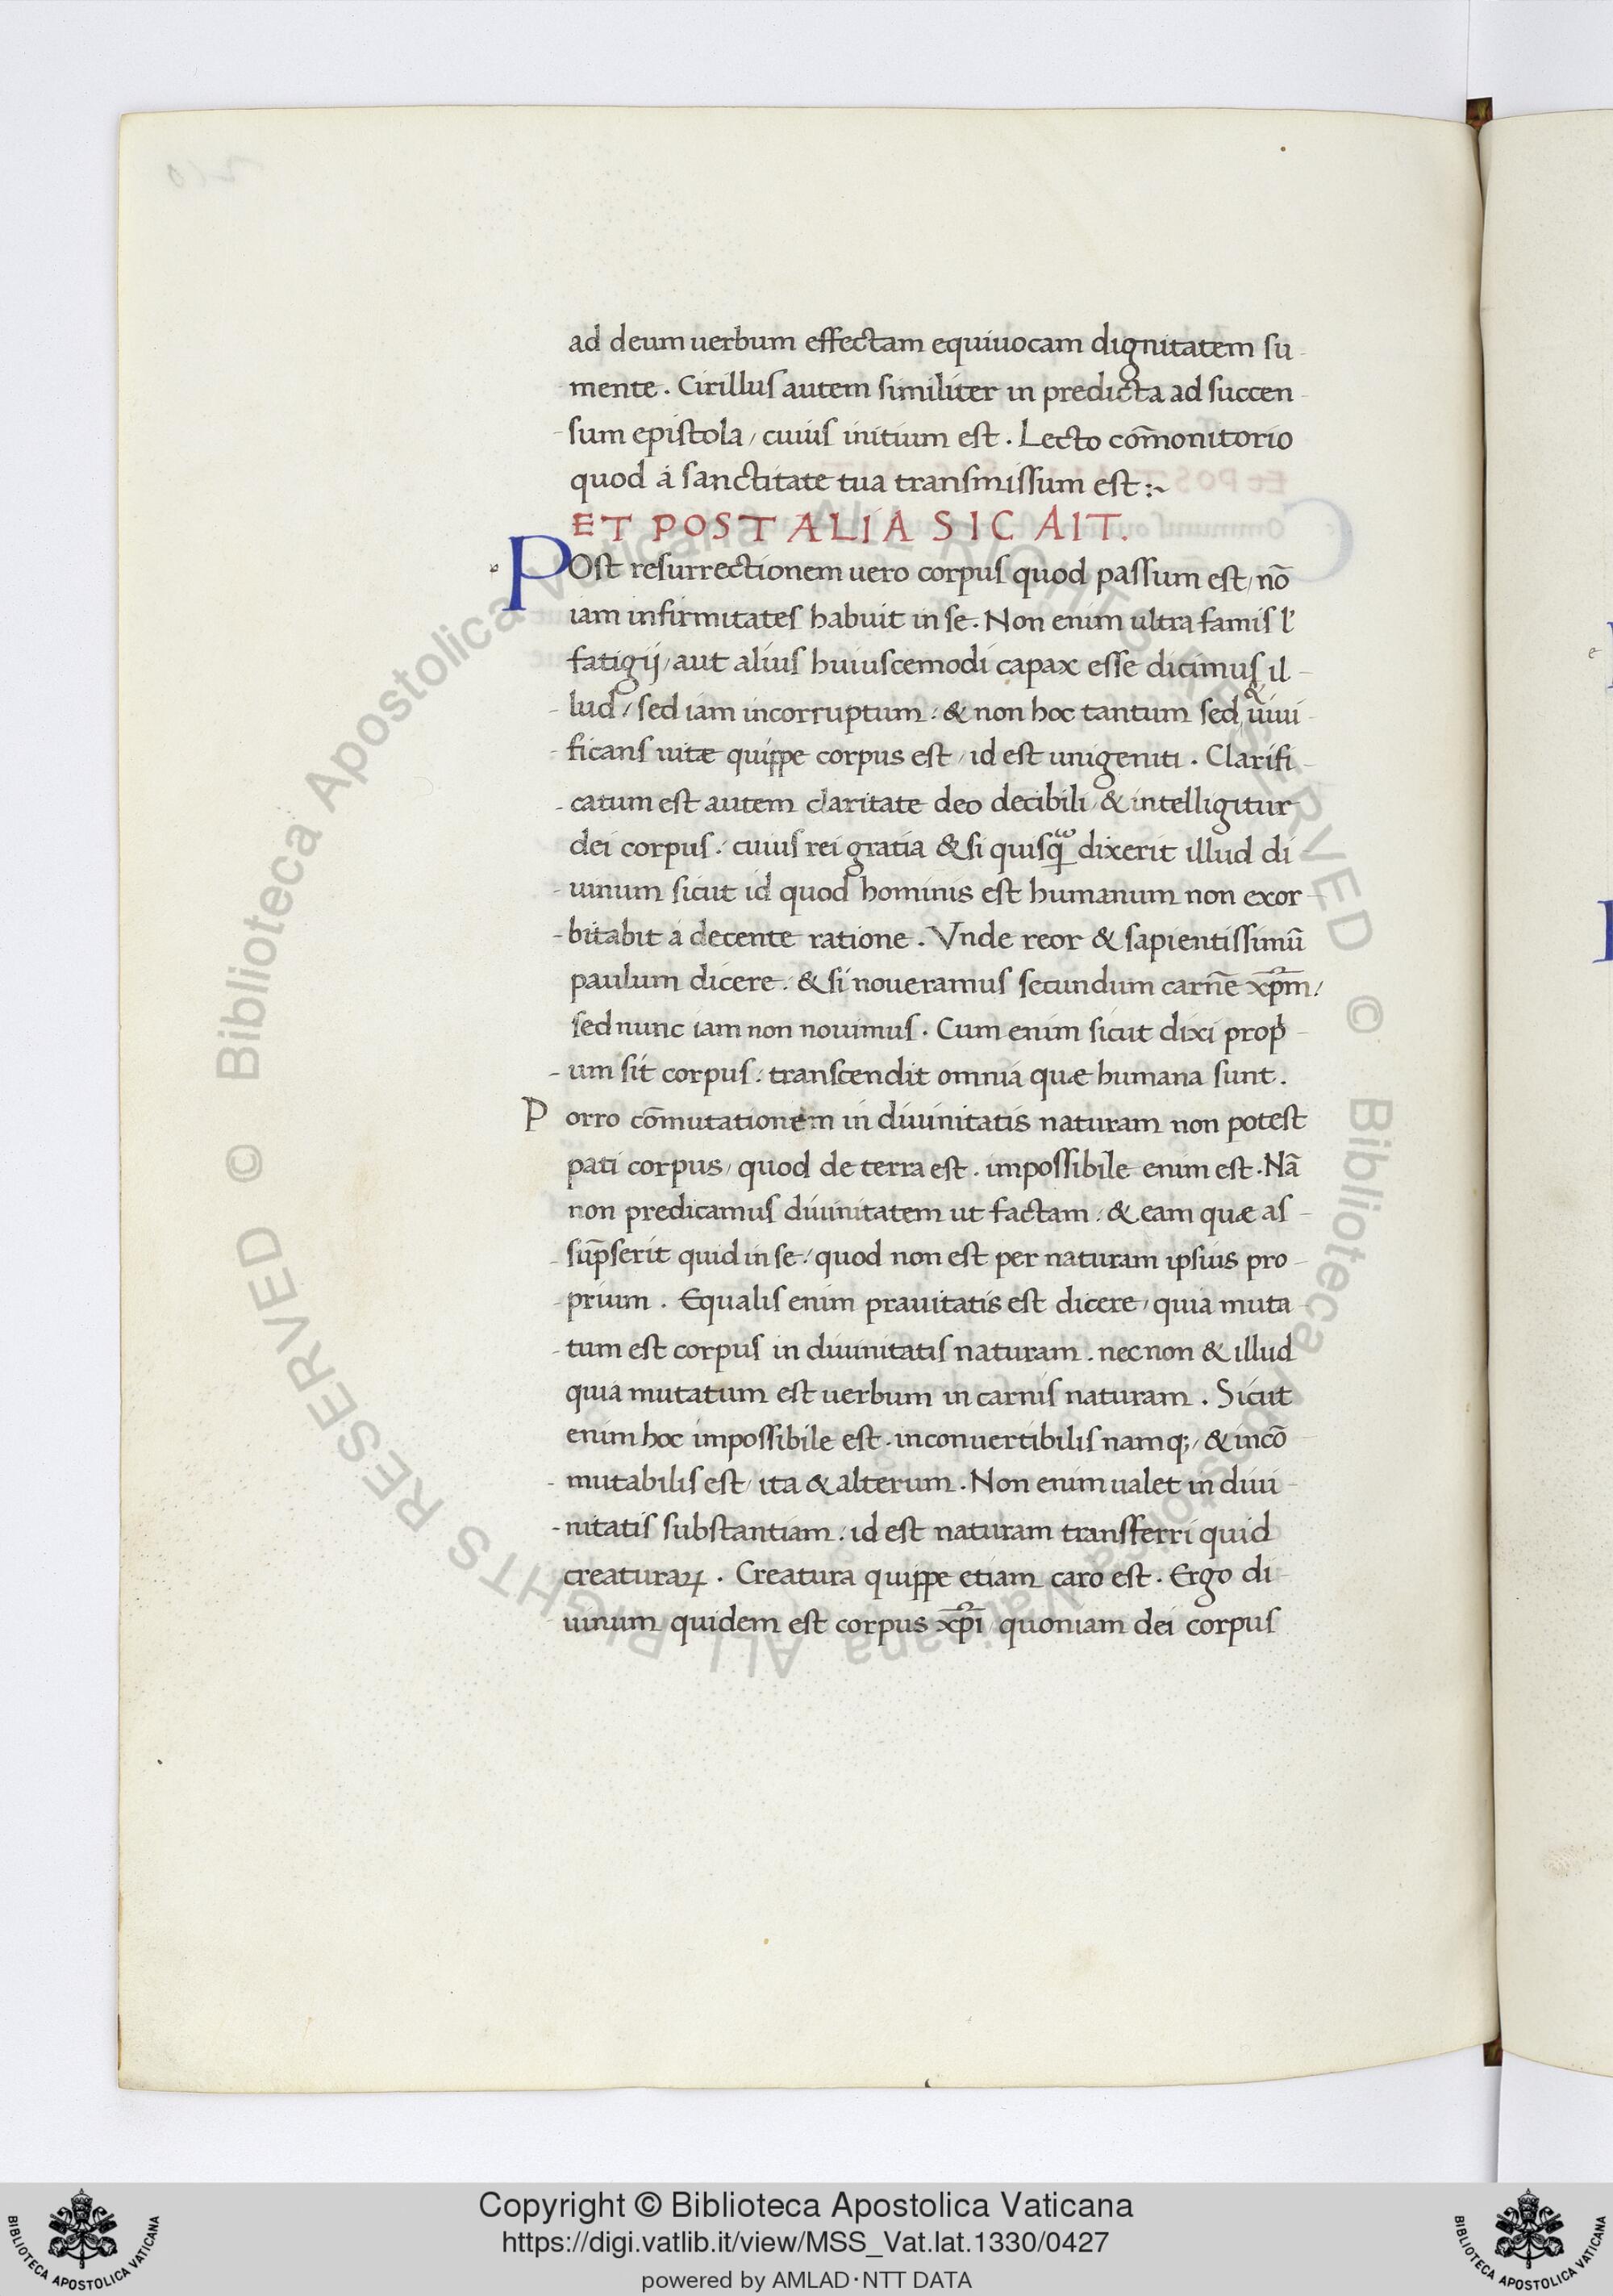 ad deum uerbum effectam equiuocam dignitatem su
mente. Cirillus autem similiter in predicta ad succen
sum epistola, cuius initium est. Lecto com̄onitorio
quod á sanctitate tua transmissum est:~
ET POST ALIA SIC AIT.
POst resurrectionem uero corpus quod passum est, nō
iam infirmitates habuit in se. Non enim ultra famis ł
fatigij, aut alius huiuscemodi capax esse dicimus il
lud, sed iam incorruptum: & non hoc tantum sed & uiui
ficans uitæ quippe corpus est, id est unigeniti. Clarifi
catum est autem claritate deo decibili, & intelligitur
dei corpus: cuius rei gratia & si quisq̄ dixerit illud di
uinum sicut id quod hominis est humanum non exor
bitabit á decente ratione. Vnde reor & sapientissimū
paulum dicere: & si noueramus secundum carnē xp̄m,
sed nunc iam non nouimus. Cum enim sicut dixi prop
um sit corpus: transcendit omnia quæ humana sunt.
Porro com̄utationem in diuinitatis naturam non potest
pati corpus, quod de terra est. impossibile enim est. Nā
non predicamus diuinitatem ut factam: & eam quæ as
sūpserit quid in se: quod non est per naturam ipsius pro
prium. Equalis enim prauitatis est dicere, quia muta
tum est corpus in diuinitatis naturam. necnon & illud
quia mutatum est uerbum in carnis naturam. Sicut
enim hoc impossibile est. inconuertibilis namq;, & incō
mutabilis est, ita & alterum. Non enim ualet in diui
nitatis substantiam: id est naturam transferri quid
creaturaꝝ. Creatura quippe etiam caro est. Ergo di
uinum quidem est corpus xp̄i, quoniam dei corpus
© Biblioteca Apostolica Vaticana ALL RIGHTS RESERVED © Biblioteca Apostolica Vaticana ALL RIGHTS RESERVED
Copyright © Biblioteca Apostolica Vaticana
https://digi.vatlib.it/view/MSS_Vat.lat.1330/0427
powered by AMLAD·NTT DATA
BIBLIOTECA APOSTOLICA VATICANA
BIBLIOTECA APOSTOLICA VATICANA